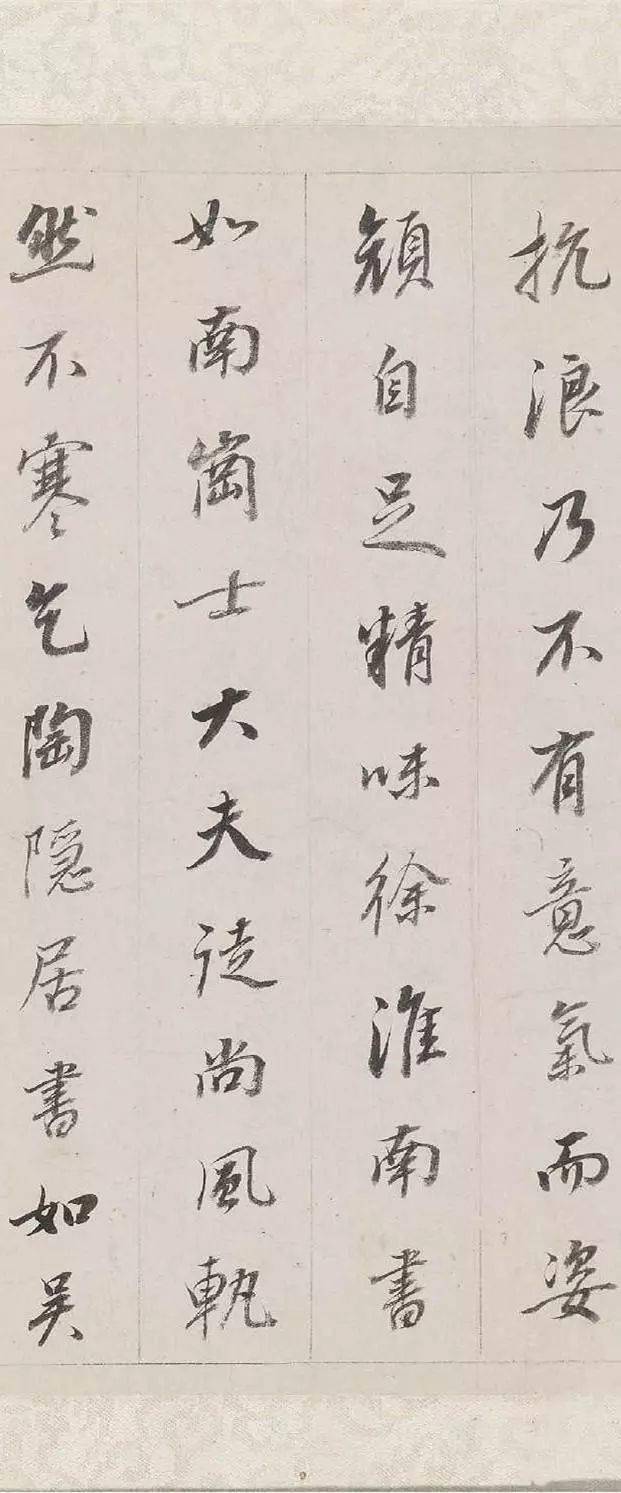 抗浪乃不有意氣而姿
顔自足精味徐淮南書
如南崗士大夫徒尚風軌
然不寒乞陶隱居書如吳